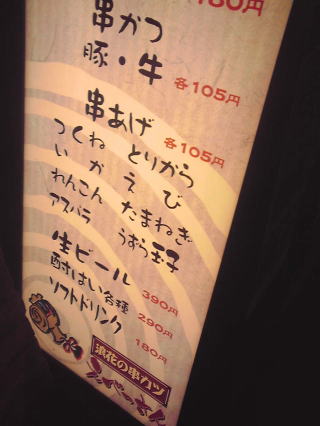 180円
串かつ
豚・牛
各105円
串あげ
各105円
つくね とりから
いか えび
れんこん たまねぎ
アスパラ うずら玉子
生ビール
390円
酎はい各種
290円
ソフトドリンク
180円
浪花の串カツ
えべっさん